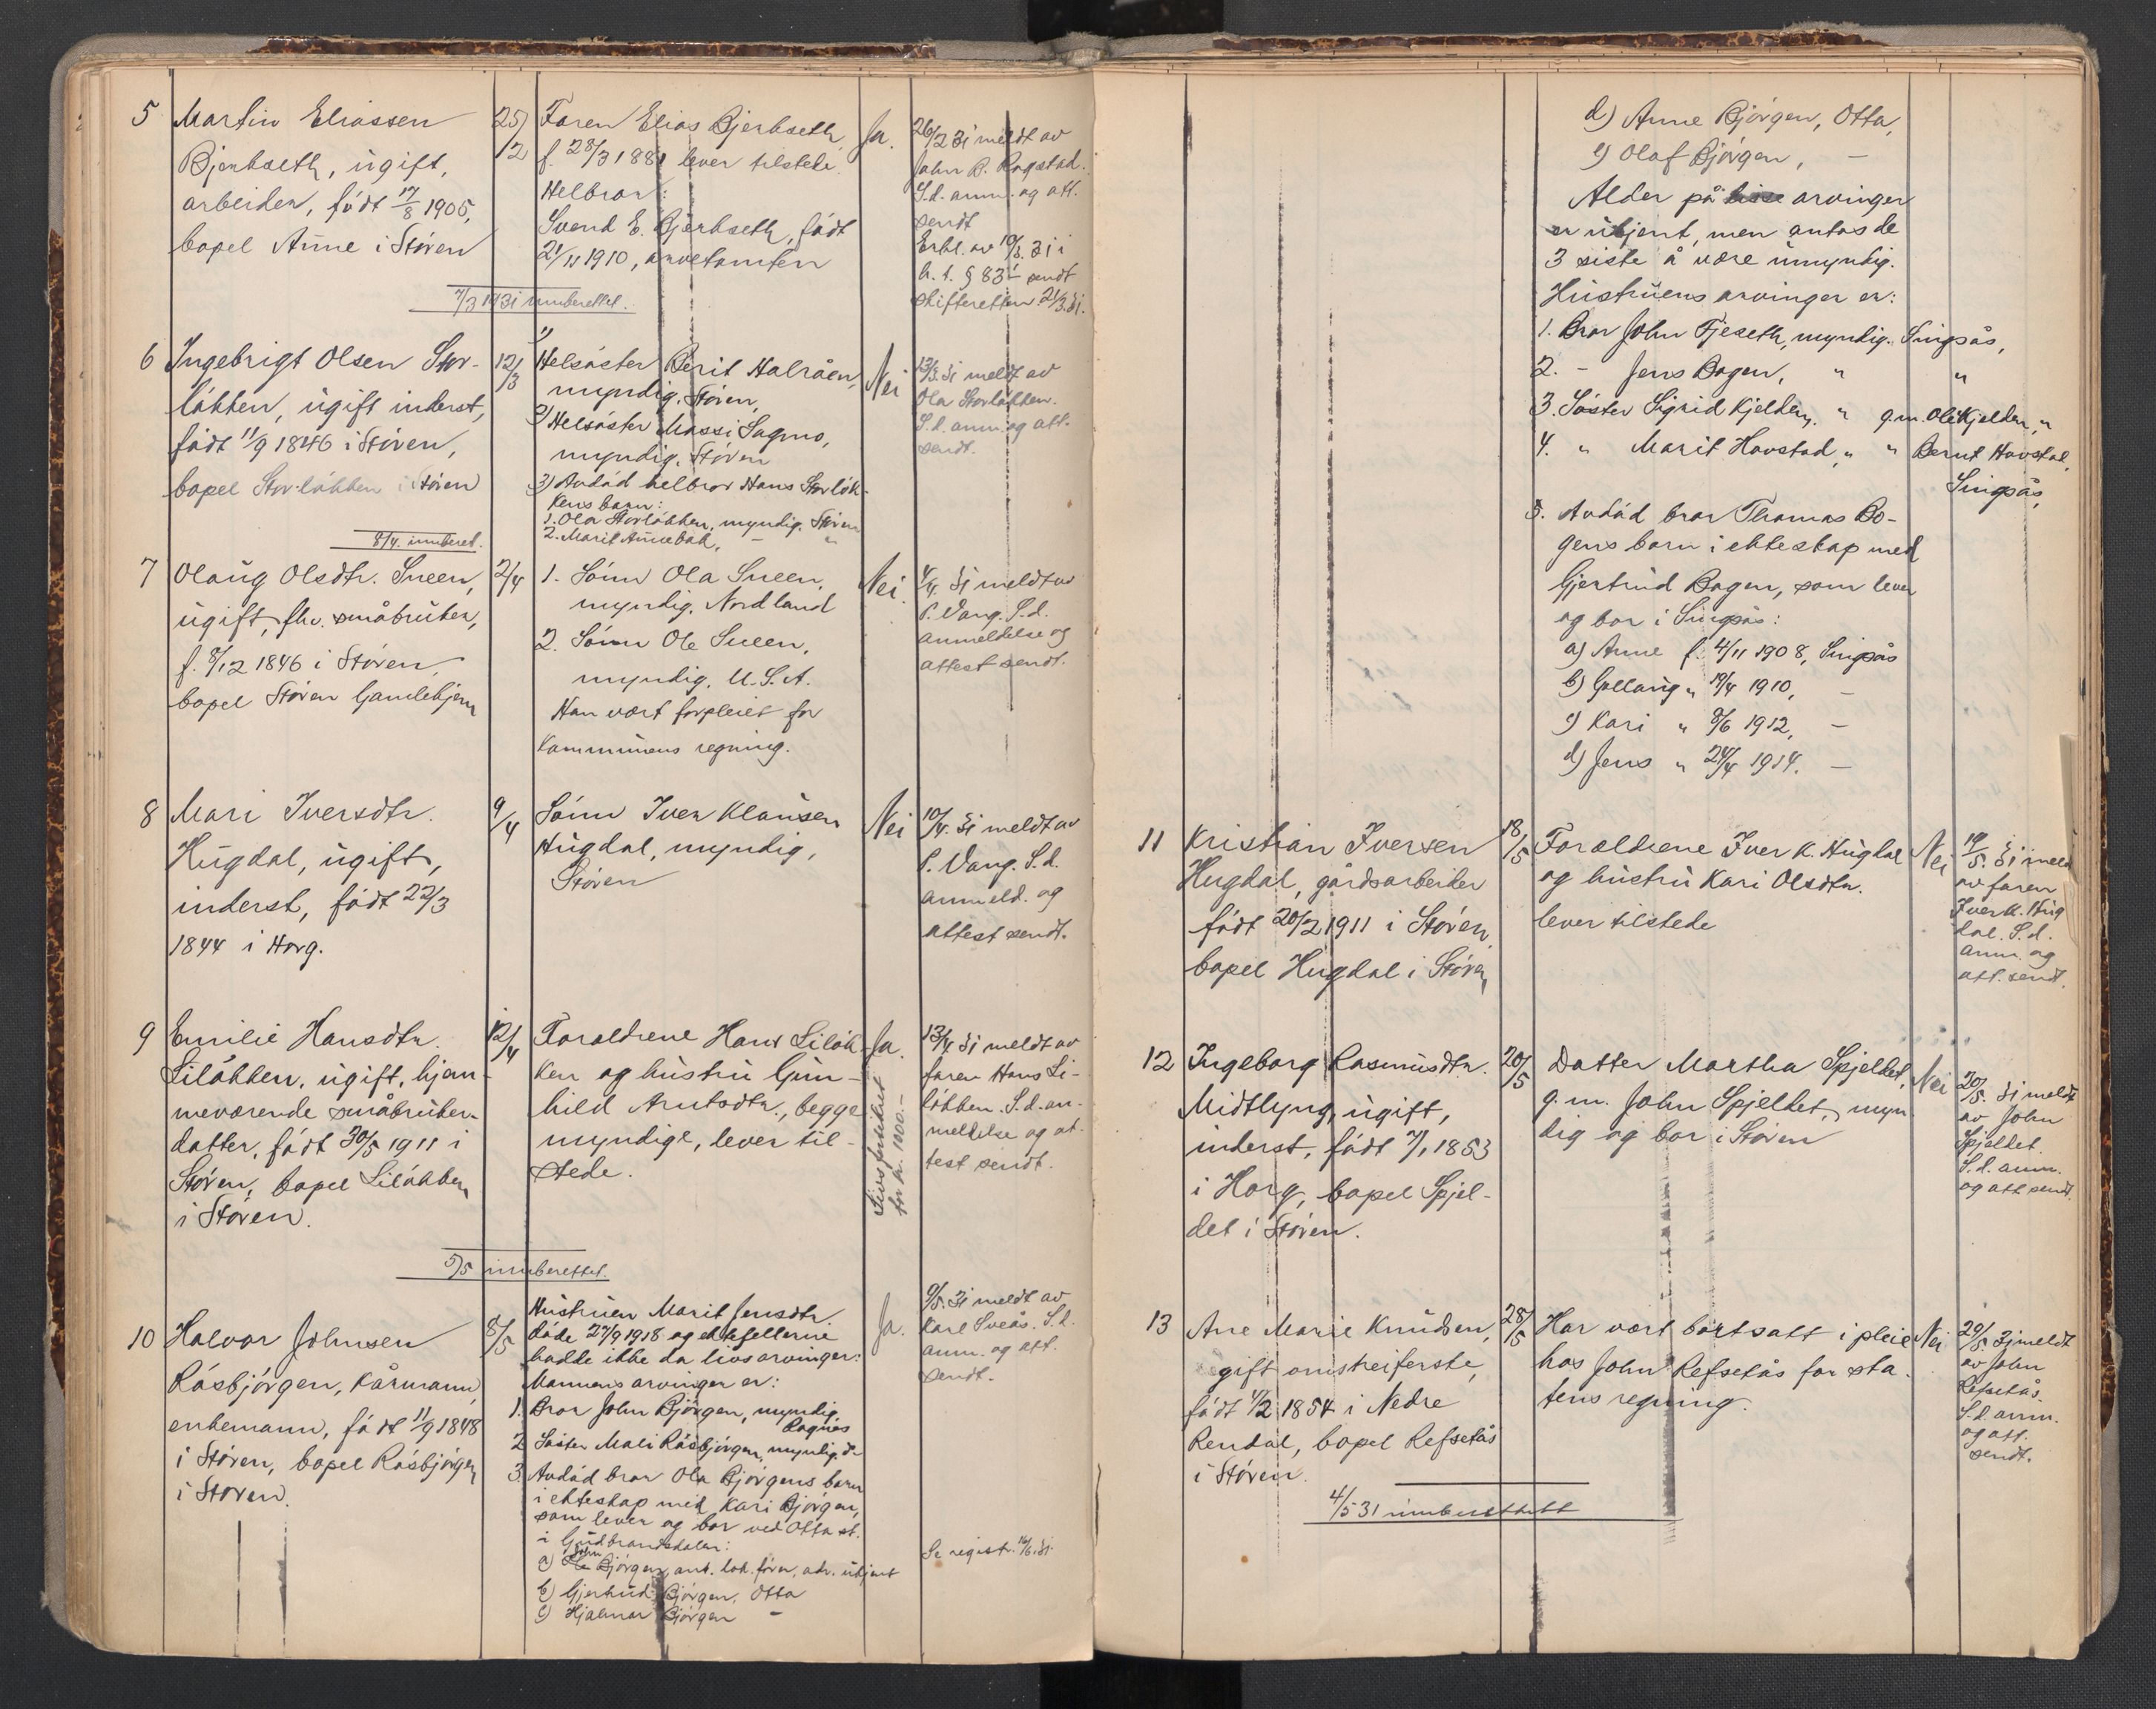 5
Martin Eliassen
Bjerkseth, ugift,
arbeider, født 17/8 1905,
bopel Aune i Støren
25/2
Faren Elias Bjerkseth
f. 28/3 1881 lever tilstede.
Helbror:
Svend E. Bjerkseth, født
21/11 1910, arvetomten
Ja.
26/2 31 meldt av
John P. Rogstad.
S.d. anm. og att.
sendt
Erkl. av 19/3. 31 i
h. t. § 83 sendt
skifteretten 21/3.31.
7/3 1931 innberettet.
6
Ingebrigt Olsen Stor-
løkken, ugift inderst,
født 11/9 1846 i Støren,
bopel Storløkken i Støren
12/3
1) Helsøster Berit Halråen,
myndig, Støren,
2) Helsøster Massi Sagmo,
myndig, Støren
3) Avdød helbror Hans Storløk-
kens barn:
1. Ola Storløkken, myndig, Støren
2. Marit Aunebak, - "
Nei
13/3. 31 meldt av
Ola Storløkken.
S.d. anm. og att.
sendt.
8/4. innberet.
7
Olaug Olsdtr. Sneen,
ugift, fhv. småbruker,
f. 8/12 1846 i Støren,
bopel Støren Gamlehjem
2/4
1. Sønn Ola Sneen,
myndig, Nordland
2. Sønn Ole Sneen,
myndig, U.S.A.
Han vært forpleiet for
kommunens regning.
Nei.
4/4. 31 meldt av
P. Vang. S.d.
anmeldelse og
attest sendt.
8
Mari Iversdtr.
Hugdal, ugift,
inderst, født 22/3
1844 i Horg.
9/4
Sønn Iver Klausen
Hugdal, myndig,
Støren
Nei
10/4. 31 meldt av
P. Vang. S.d.
anmeld. og
attest sendt.
9
Emilie Hansdtr.
Liløkken, ugift, hjem-
meværende småbruker-
datter, født 30/5 1911 i
Støren, bopel Liløkken
i Støren.
12/4
Foreldrene Hans Liløk-
ken og hustru Gun-
hild Arntsdtr., begge
myndige, lever til-
stede.
Ja.
Livsforsikret
for kr. 1000.-
13/4 31 meldt av
faren Hans Li-
løkken. S.d. an-
meldelse og at-
test sendt.
5/5 innberettet.
10
Halvor Johnsen
Råsbjørgen, kårmann,
enkemann, født 11/9 1848
i Støren, bopel Råsbjørgen
i Støren.
8/5
Hustruen Marit Jensdtr.
døde 27/9 1918 og ektefellerne
hadde ikke da livsarvinger:
Mannens arvinger er:
1. Bror John Bjørgen, myndig,
Rognes
2. Søster Mali Råsbjørgen, myndig, do
3. Avdød bror Ola Bjørgens barn
i ekteskap med Kari Bjørgen,
som lever og bor ved Otta st.
i Gudbrandsdalen:
a) John Bjørgen, ant. lok.fører, adr. ukjent
b) Gjertrud Bjørgen, Otta
c) Hjalmar Bjørgen -
Ja.
9/5. 31 meldt av
Karl Sveås. S.d.
anm. og att.
sendt.
Se registr. 16/6.31.
d) Anne Bjørgen, Otta,
e) Olaf Bjørgen, -
Alder på disse arvinger
er ukjent, men antas de
3 siste å være umyndig.
Hustruens arvinger er:
1. Bror John Fjeseth, myndig. Singsås,
2. - Jens Bogen, " "
3. Søster Sigrid Kjelden, " g.m. Ole Kjelden, "
4. " Marit Hovstad, " " Bernt Hovstad,
Singsås,
5. Avdød bror Thomas Bo-
gens barn i ekteskap med
Gjertrud Bogen, som lever
og bor i Singsås:
a) Anne f. 4/11 1908, Singsås
b) Gollaug " 19/4 1910, -
c) Kari " 8/6 1912, -
d) Jens " 24/4 1914. -
11
Kristian Iversen
Hugdal, gårdsarbeider
født 20/2 1911 i Støren,
bopel Hugdal i Støren,
18/5
Foreldrene Iver K. Hugdal
og hustru Kari Olsdtr.
lever tilstede
Nei
19/5. 31 meldt
av faren
Iver K. Hug
dal. S.d.
anm. og
att. sendt.
12
Ingeborg Rasmusdtr.
Midtlyng, ugift,
inderst, født 7/1 1853
i Horg, bopel Spjel-
det i Støren.
20/5
Datter Martha Spjeldet,
g.m. John Spjeldet, myn-
dig og bor i Støren
Nei
20/5. 31 meldt
av John
Spjeldet.
S.d. anm.
og att sendt.
13
Ane Marie Knudsen,
gift omstreiferske,
født 4/2 1854 i Nedre
Rendal, bopel Refsetås
i Støren.
28/5
Har vært bortsatt i pleie
hos John Refsetås for sta-
tens regning.
Nei
29/5. 31 meldt
av John
Refsetås.
S.d. anm.
og att.
sendt.
4/5 31 innberettett